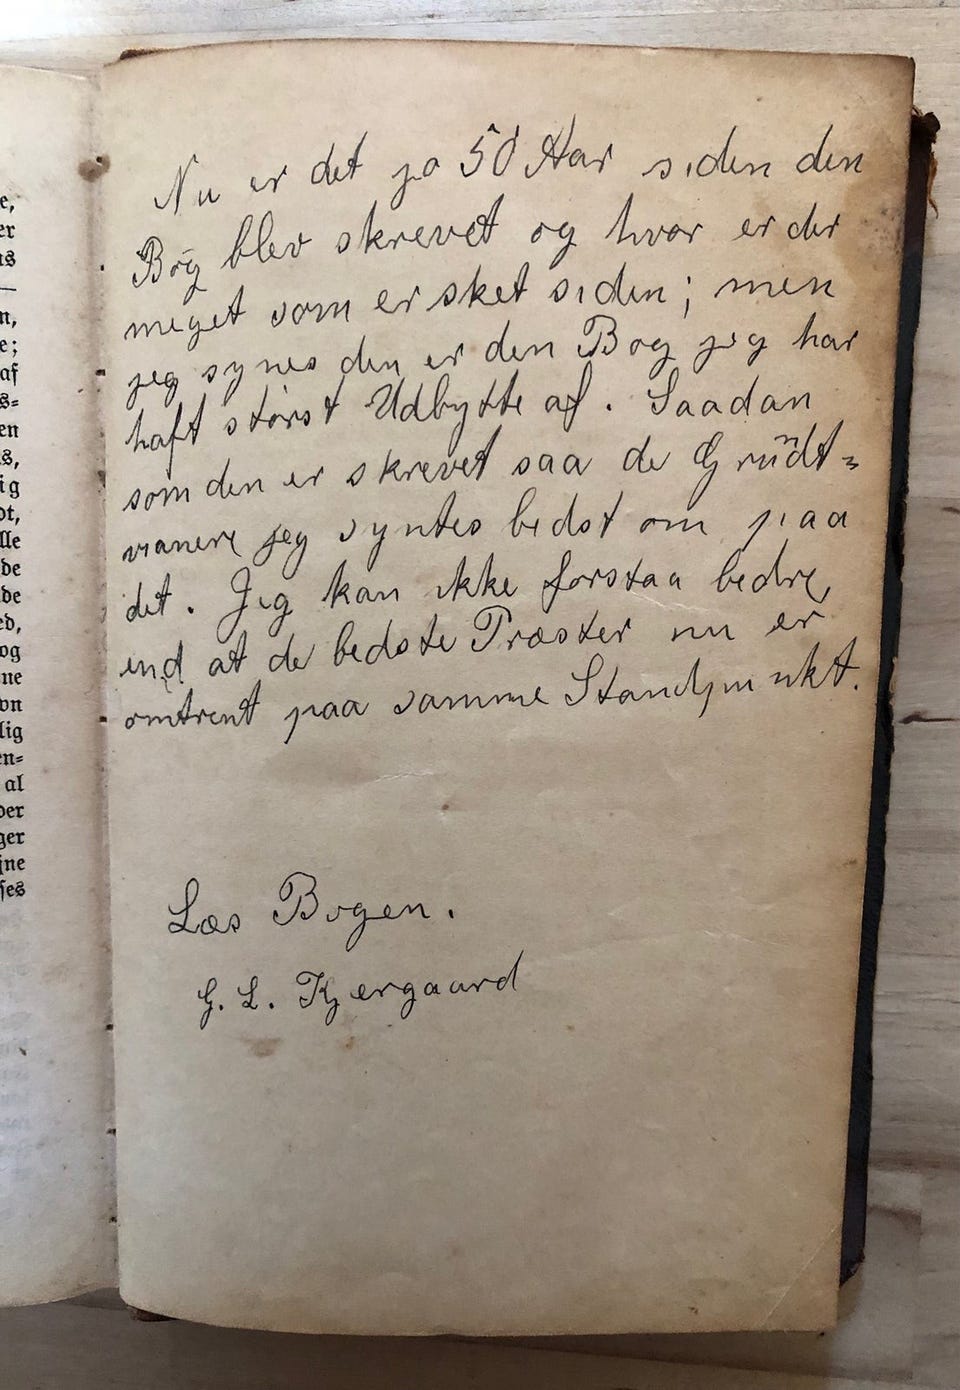 e,
er
is
—
n,
e;
af
s=
en
s,
ig
ot,
lle
de
de
ed,
og
ne
on
lig
en=
al
der
ger
jne
ses
Nu er det jo 50 Aar siden den
Bog blev skrevet og hvor er der
meget som er sket siden; men
jeg synes den er den Bog jeg har
haft størst Udbytte af. Saadan
som den er skrevet saa de Grundt=
vianere jeg syntes bedst om paa
det. Jeg kan ikke forstaa bedre,
end at de bedste Præster nu er
omtrent paa samme Standpunkt.
Læs Bogen.
G. L. Kjergaard